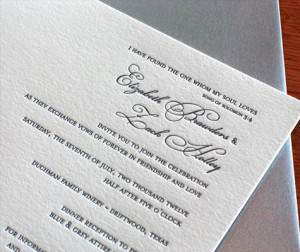 I HAVE FOUND THE ONE WHOM MY SOUL LOVES
SONG OF SOLOMON 3:4
Elizabeth &
Zach
INVITE YOU TO JOIN THE CELEBRATION
AS THEY EXCHANGE VOWS OF FOREVER IN FRIENDSHIP AND LOVE
SATURDAY, THE SEVENTH OF JULY, TWO THOUSAND TWELVE
HALF AFTER FIVE O'CLOCK
DUCHMAN FAMILY WINERY ~ DRIFTWOOD, TEXAS
DINNER RECEPTION TO
BLUE & GREY ATTIRE
FOR INFORMATION